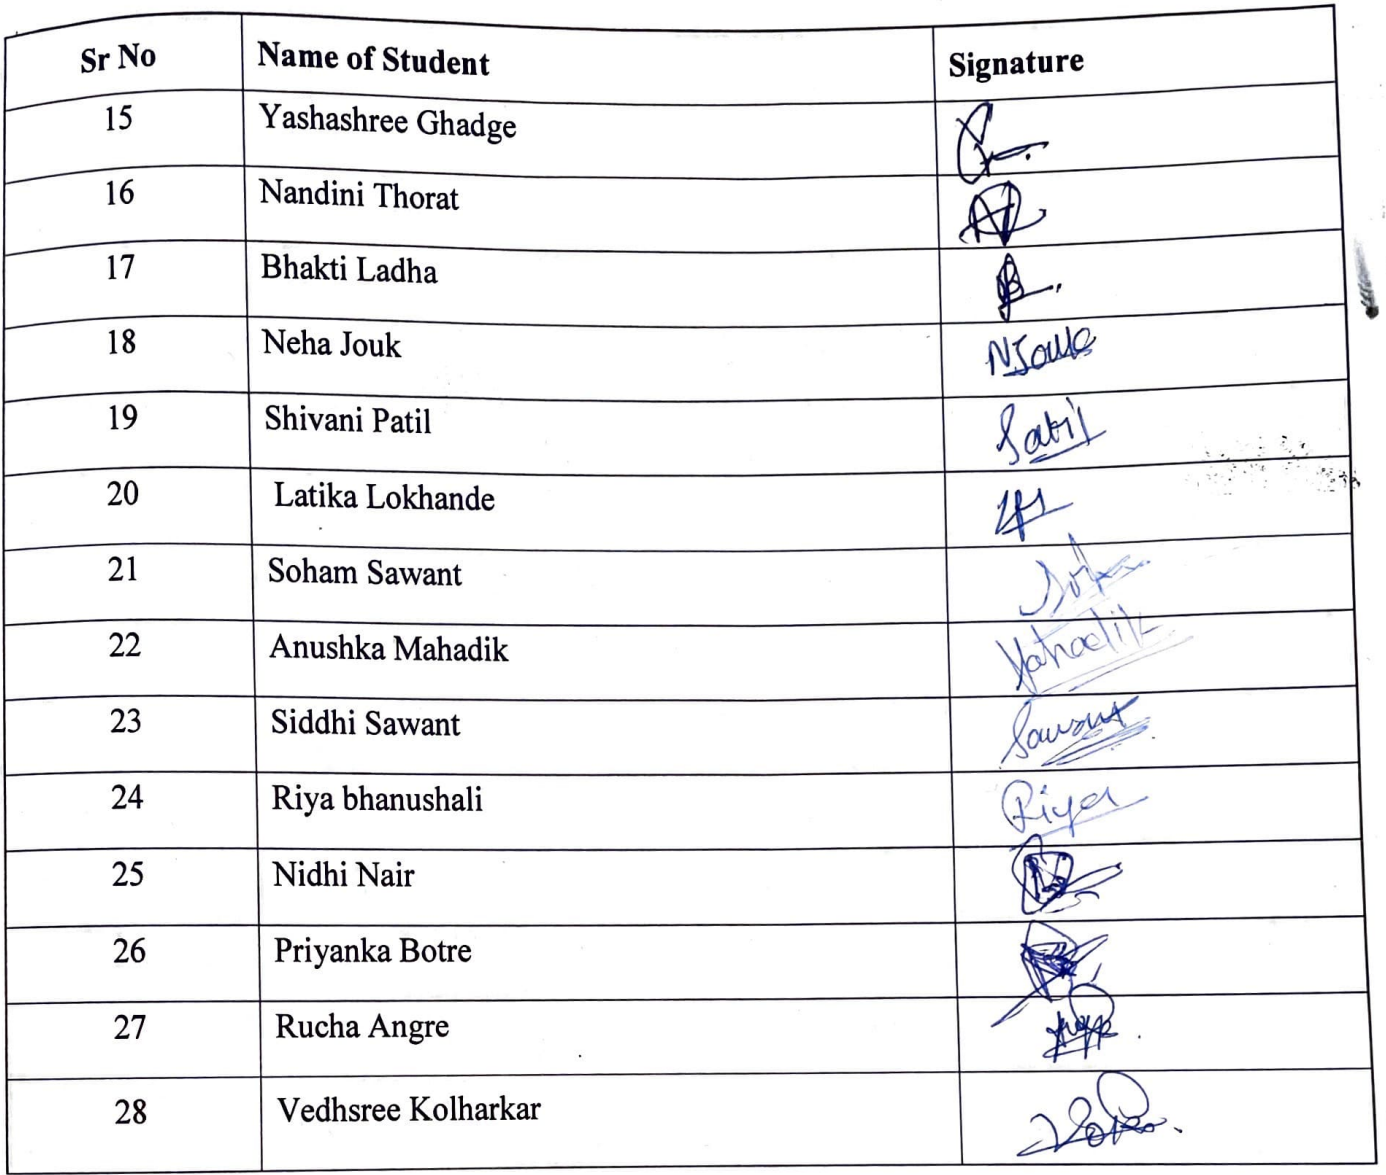 Sr No Name of Student Signature
15 Yashashree Ghadge
16 Nandini Thorat
17 Bhakti Ladha
18 Neha Jouk NJouk
19 Shivani Patil
20 Latika Lokhande
21 Soham Sawant
22 Anushka Mahadik
23 Siddhi Sawant Sawant
24 Riya bhanushali Riya
25 Nidhi Nair
26 Priyanka Botre
27 Rucha Angre
28 Vedhsree Kolharkar